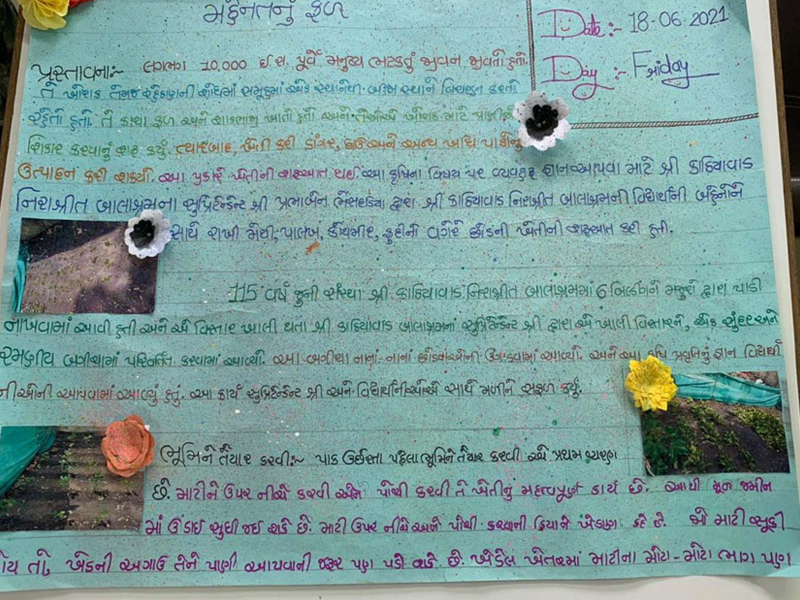 મહેનતનું ફળ
Date :- 18-06-2021
Day :- Friday
પ્રસ્તાવના:- લગભગ 10,000 ઈ.સ. પૂર્વે મનુષ્ય ભટકતું જીવન જીવતો હતો.
તે ખોરાક તેમજ રહેઠાણની શોધમાં સમૂહમાં એક સ્થાનેથી બીજા સ્થાને વિચરણ કરતો
રહેતો હતો. તે કાચા ફળ અને શાકભાજી ખાતો હતો અને તેઓએ ખોરાક માટે પ્રાણીનો
શિકાર કરવાનું શરૂ કર્યું. ત્યારબાદ, ખેતી કરી ડાંગર, અને અન્ય પાકોનું
ઉત્પાદન કરી શક્યો. આ પ્રકારે ખેતીની શરૂઆત થઈ આ કૃષિના વિષય પર વ્યવહારુ જ્ઞાન આપવા માટે શ્રી કાઠિયાવાડ
નિરાશ્રીત બાલાશ્રમના સુપ્રિટેન્ડેન્ટ શ્રી પ્રભાબેન દ્વારા શ્રી કાઠિયાવાડ નિરાશ્રીત બાલાશ્રમની વિદ્યાર્થીની બહેનોને
સાથે રાખી મેથી, પાલખ, કોથમીર, ફુદીનો વગેરે છોડની ખેતીની શરૂઆત કરી હતી.
115 વર્ષ જુની સંસ્થા શ્રી કાઠિયાવાડ નિરાશ્રીત બાલાશ્રમમાં 6 બિલ્ડીંગને મજુરો દ્વારા પાડી
નાખવામાં આવી હતી અને એ વિસ્તાર ખાલી થતા શ્રી કાઠિયાવાડ બાલાશ્રમનાં સુપ્રિટેન્ડેન્ટ શ્રી દ્વારા એ ખાલી વિસ્તારને, એક સુંદર અને
રમણીય બગીચામાં પરિવર્તિત કરવામાં આવ્યો. આ બગીચા નાના-નાના છોડવાઓની ઉગાડવામાં આવ્યો. અને આ કૃષિ પ્રવૃતિનું જ્ઞાન વિદ્યાર્થી
નીઓની આપવામાં આવ્યું હતું. આ કાર્ય સુપ્રિટેન્ડેન્ટ શ્રી અને વિદ્યાર્થીનીઓએ સાથે મળીને સફળ કર્યું.
ભૂમિને તૈયાર કરવી:- પાક ઉછેરતા પહેલા ભૂમિને તૈયાર કરવી એ પ્રથમ ચરણ
છે. માટીને ઉપર નીચે કરવી અને પોચી કરવી તે ખેતીનું મહત્વપૂર્ણ કાર્ય છે. આથી મૂળ જમીન
માં ઉંડાઈ સુધી જઈ શકે છે. માટી ઉપર નીચે અને પોચી કરવાની ક્રિયાને ખેડાણ કહે છે. જો માટી સૂકી
હોય તો, ખેડની અગાઉ તેને પાણી આપવાની જરૂર પણ પડી શકે છે. ખેડેલ ખેતરમાં માટીના મોટા-મોટા ભાગ પણ